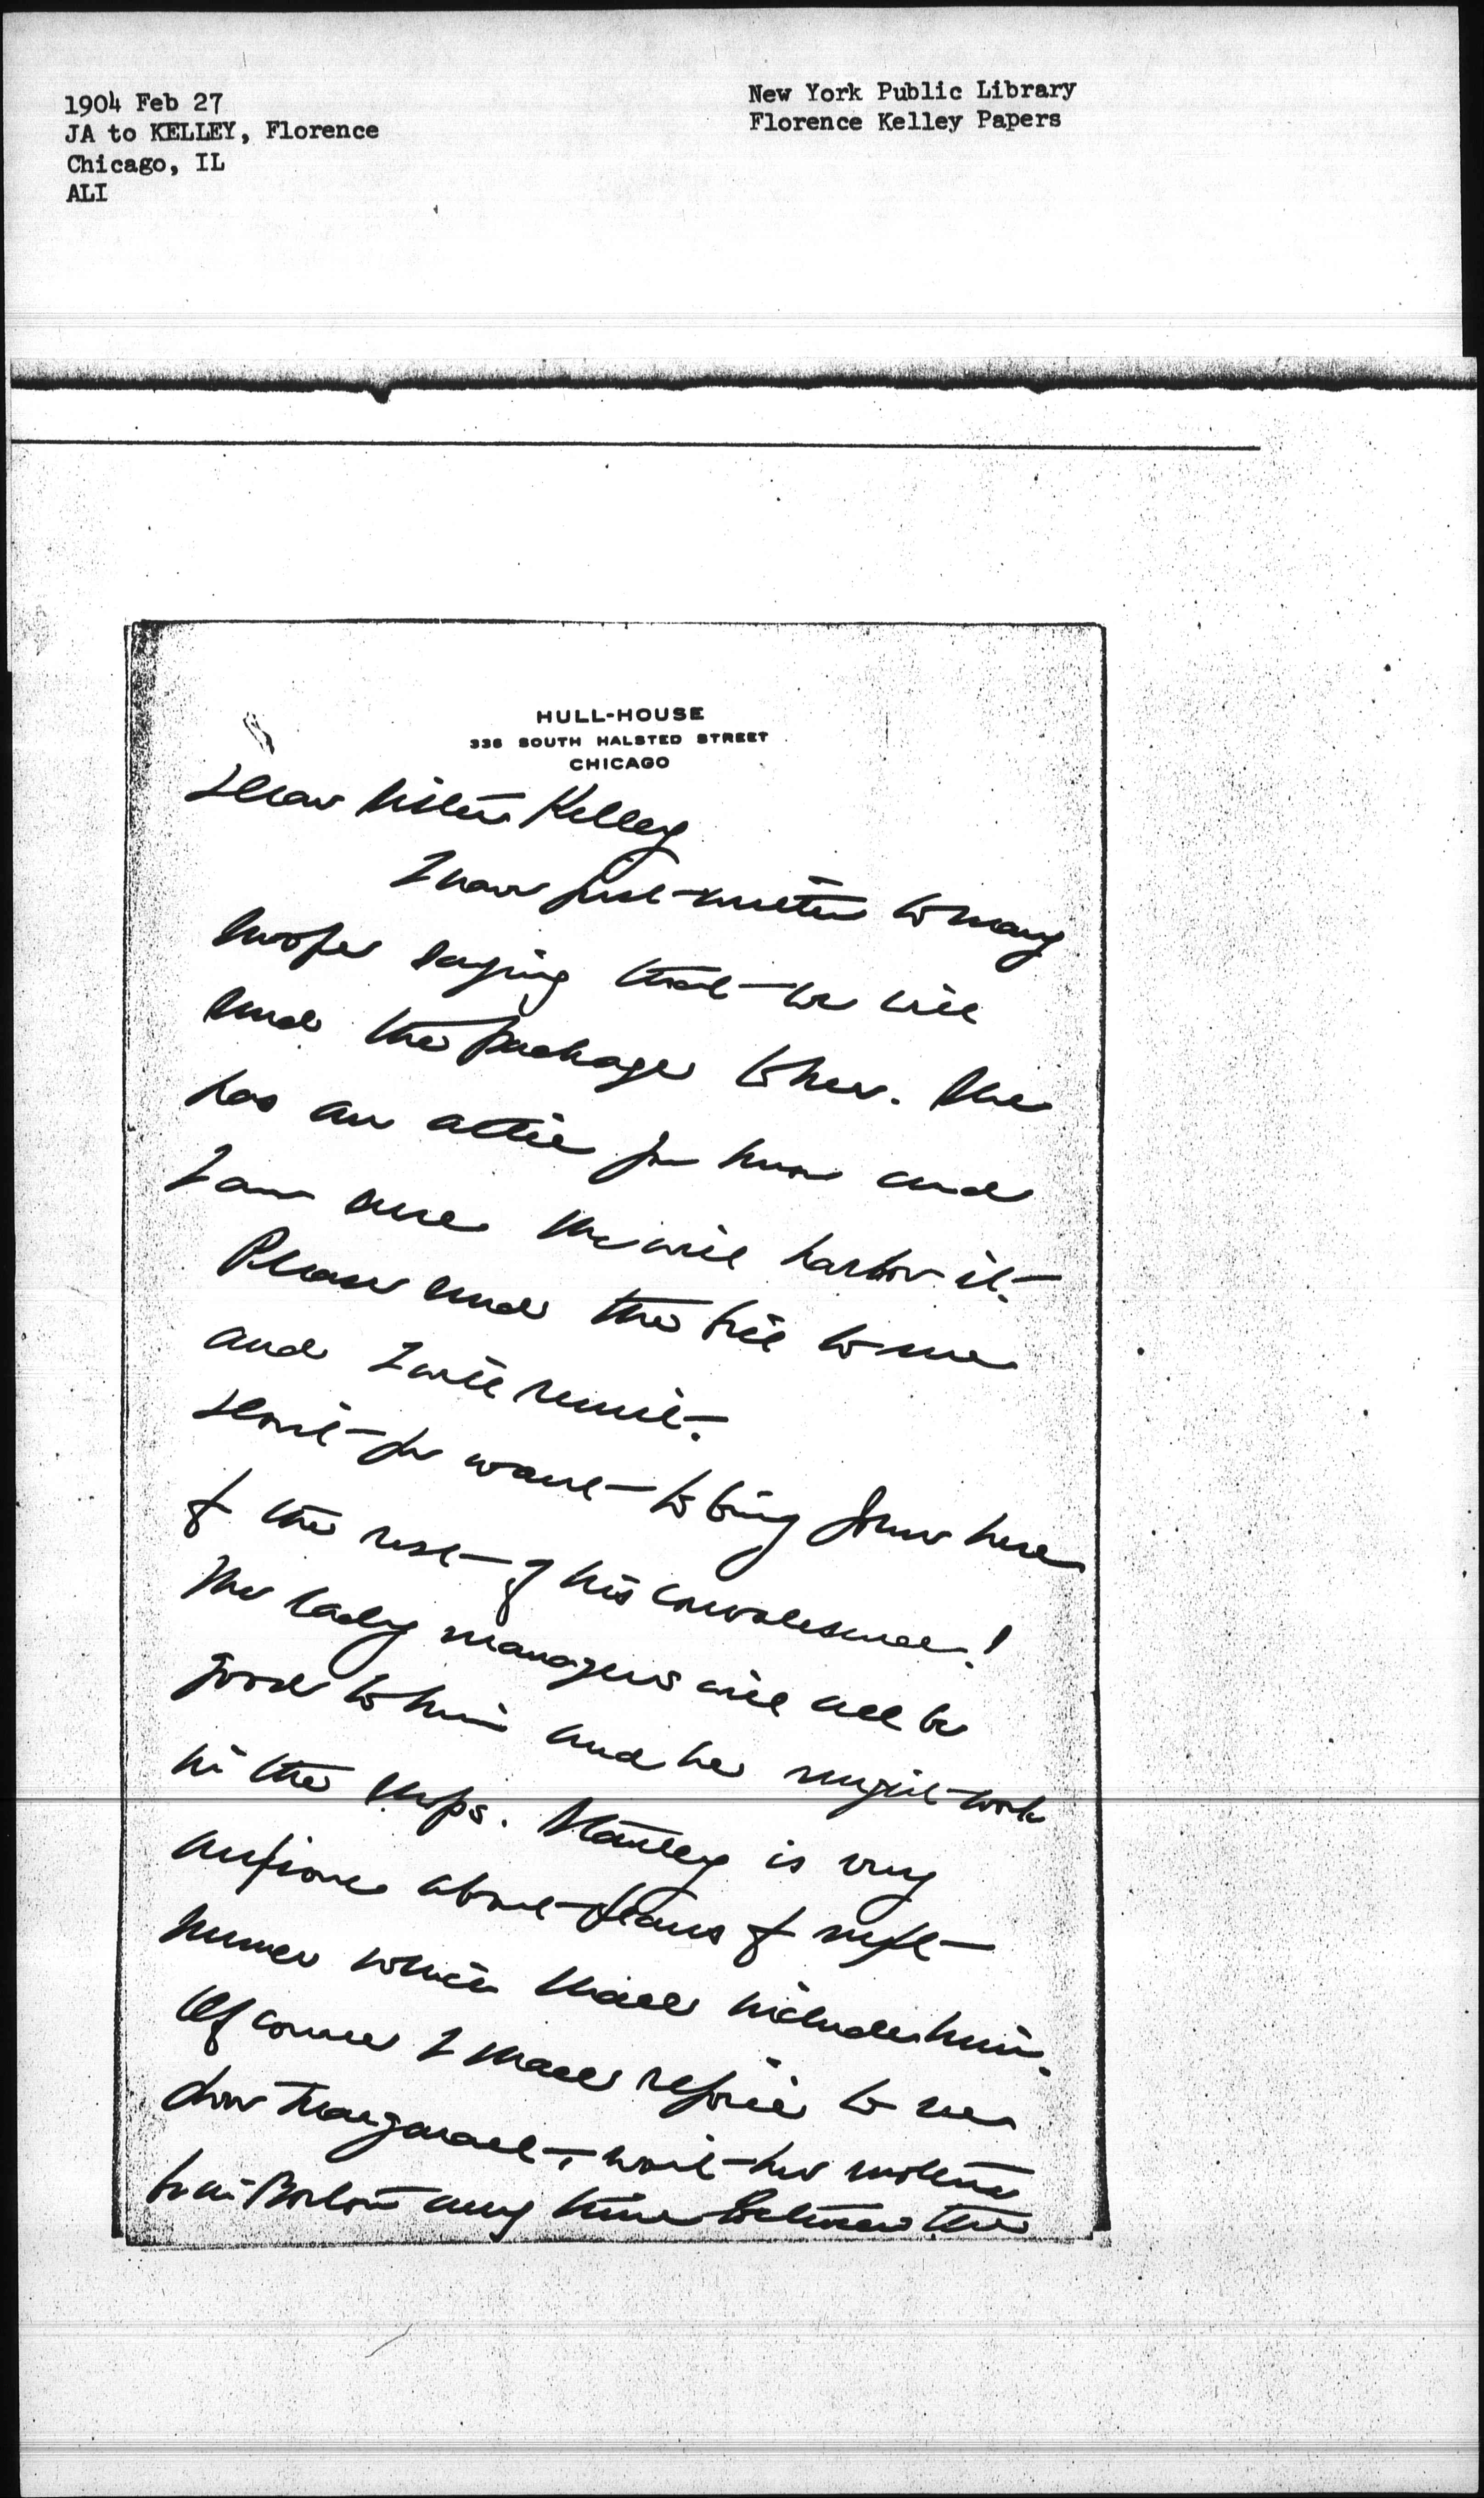 1904 Feb 27
JA to KELLEY, Florence
Chicago, IL
ALI
New York Public Library
Florence Kelley Papers
HULL-HOUSE
335 SOUTH HALSTED STREET
CHICAGO
Dear Sister Kelley
I have just written to Mary
saying that we will
send the package to her. She
has an attic for him and
I am sure she will harbor it.
Please send the bill to me
and I will remit.
Don't you want to bring John here
for the rest of his convalescence!
The lady managers will all be
good to him and he might work
in the shops. Stanley is very
anxious about plans for next
summer which shall include him.
Of course I shall rejoice to see
dear Margaret, won't her mother
be in Boston any time between the